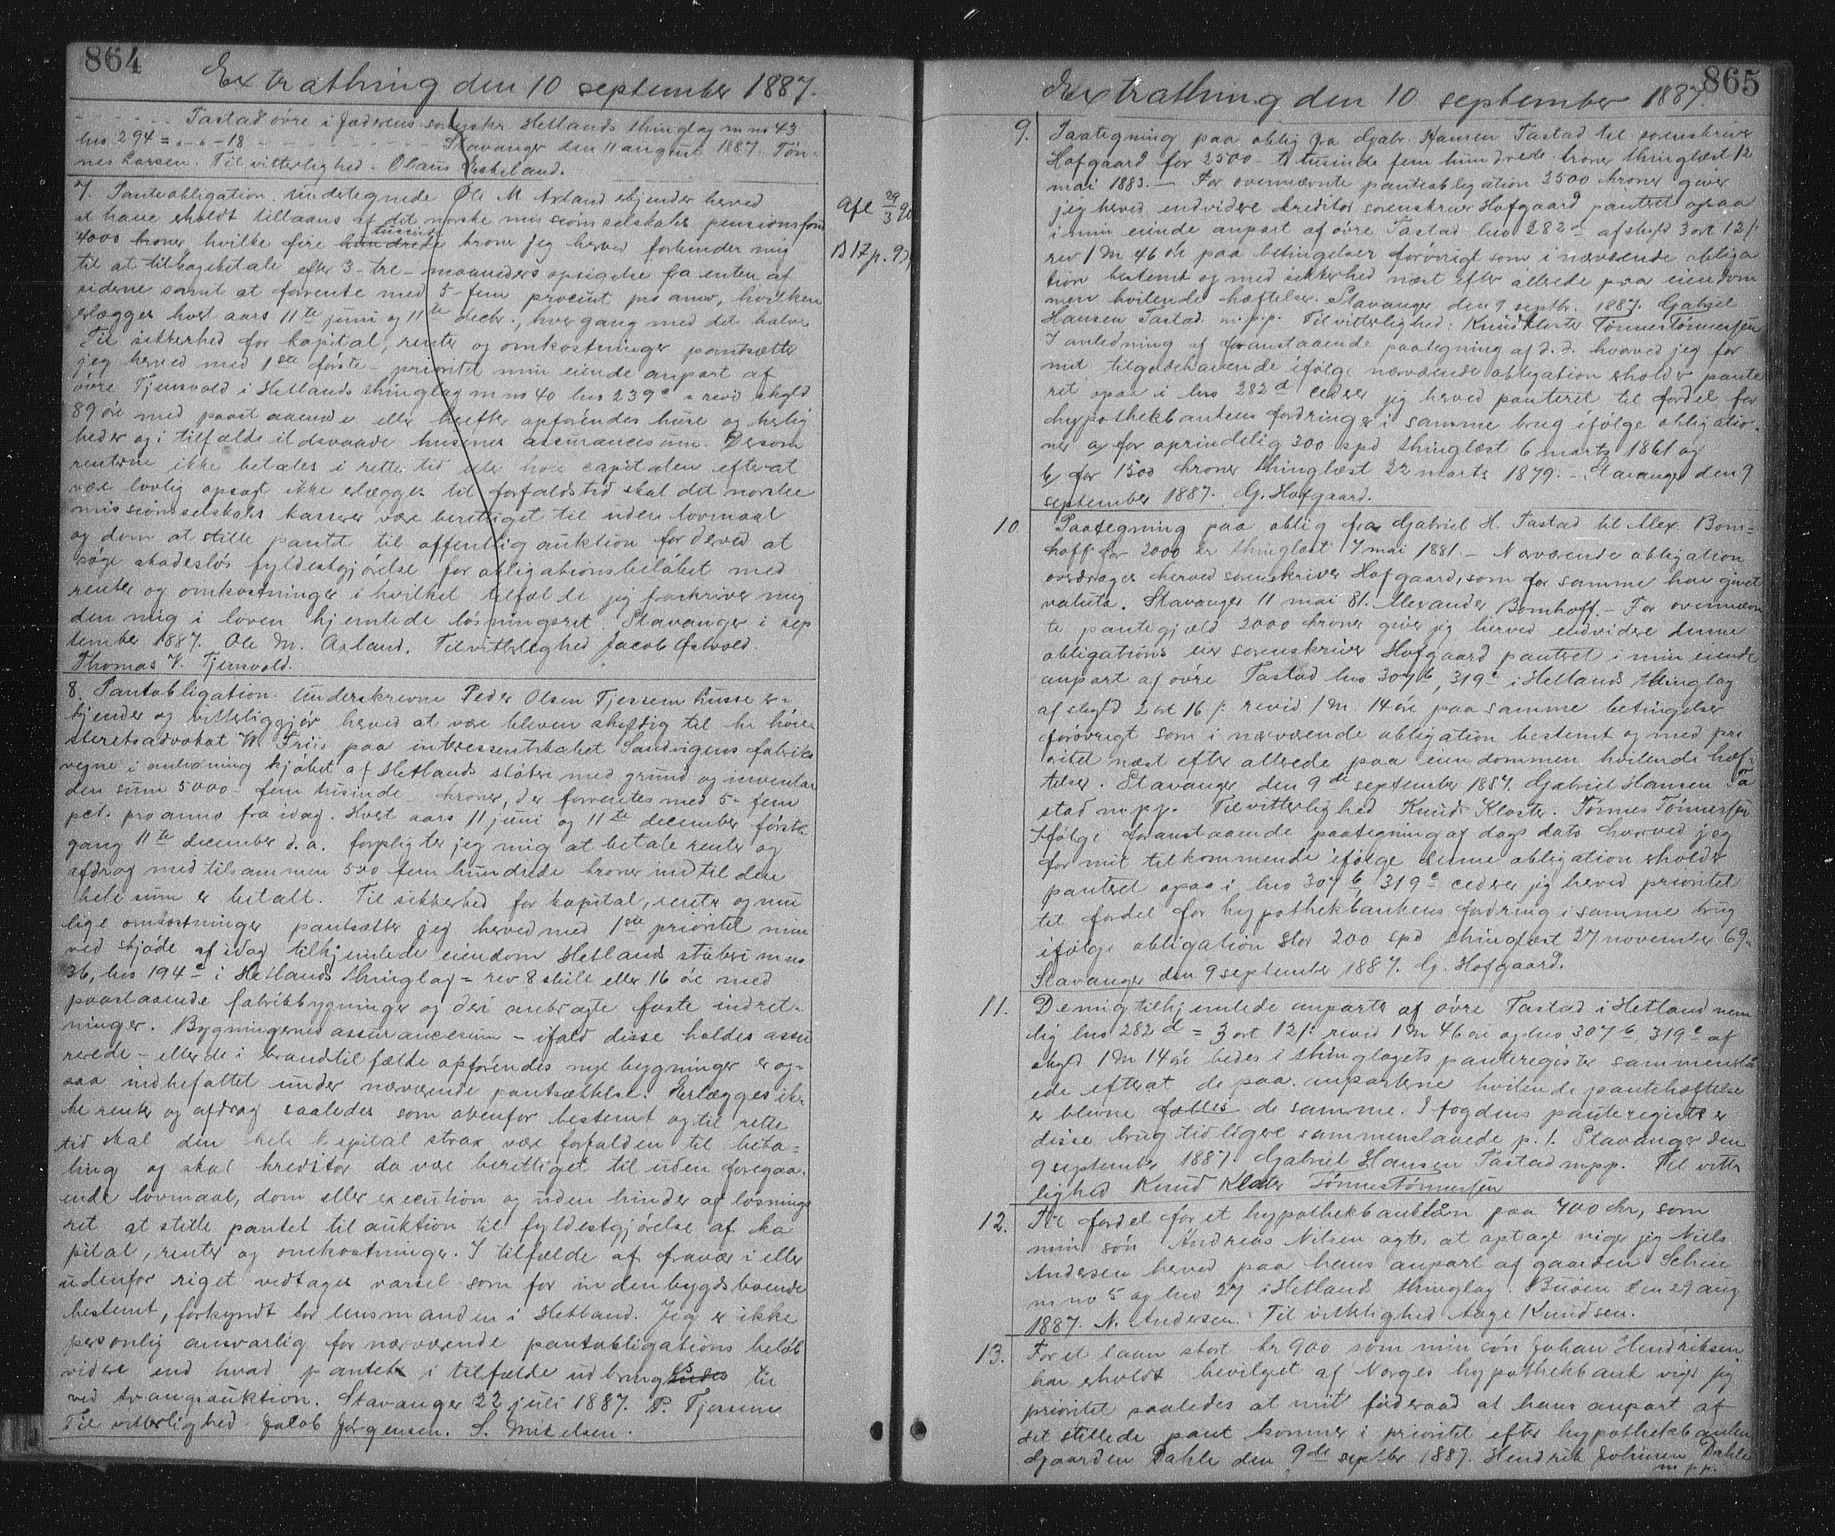 864
Extrathing den 10 september 1887.
Tastad øvre i Jæderens sorenskr. Hetlands thinglag m no 43
lno 294 = " - " - 18 Stavanger den 11 august 1887. Tøn-
nes Larsen. Til vitterlighed - Olaus Eskeland.
7. Panteobligation. Undertegnede Ole M. Axland erkjender herved
at have erholdt tillaans af det norske missionsselskabs pensionsfond
4000 kroner hvilke fire tusinde hundrede kroner jeg herved forbinder mig
til at tilbagebetale efter 3 - tre - maaneders opsigelse fra enten af
siderne samt at forrente med 5 - fem procent pro anno, hvilken
erlægges hvert aars 11te juni og 11te decbr., hver gang med det halve
Til sikkerhed for kapital, renter og omkostninger pantsætter
jeg herved med 1ste første - prioritet min eiende anpart af
øvre Tjensvold i Hetlands thinglag m no 40 lno 239c = revid skyld
89 öre med paastaaende eller herefter opførendes huse og herlig
heder og i tilfælde ildsvaade husenes assurancesum. Dersom
renterne ikke betales i rette tid eller hvis capitalen efter at
være lovlig opsagt ikke erlægges til forfaldstid skal det norske
missionsselskabs kasserer være berettiget til uden lovmaal
og dom at stille pantet til offentlig auktion for derved at
søge skadesløs fyldestgjørelse for obligationsbeløbet med
renter og omkostninger i hvilket tilfælde jeg fraskriver mig
den mig i loven hjemlede løsningsret. Stavanger i sep
tember 1887. Ole M. Axland. Til vitterlighed Jacob Østvold.
Thomas V. Tjensvold.
Afl 29/3 90
B 17 p. 97
8. Panteobligation. Underskrevne Peder Olsen Tjessem husse er-
kjender og vitterliggjør herved at være bleven skyldig til hr høie
steretsadvokat W. Friis paa interessentskabet Sandvigens fabriks
vegne i anledning kjøbet af Hetlands støberi med grund og inventar
den sum 5000 - fem tusinde - kroner, der forrentes med 5 - fem
pct. pro anno fra idag. Hvert aars 11 juni og 11te december første
gang 11te december d. a. forpligter jeg mig at betale renter og
afdrag med tilsammen 500 fem hundrede kroner indtil den
hele sum er betalt. Til sikkerhed for kapital, renter og mu
lige omkostninger pantsætter jeg herved med 1ste prioritet min
ved skjøde af idag tilhjemlede eiendom Hetlands støberi m no
36, lno 194c i Hetlands thinglag = rev 8 skill eller 16 øre med
paastaaende fabrikbygninger og deri anbragte faste indret-
ninger. Bygningernes assurancesum - ifald disse holdes assu
rerede - eller de i brandtilfælde opførendes nye bygninger er og-
saa indbefattet under nærværende pantsættelse. Erlægges ik-
ke renter og afdrag saaledes som ovenfor bestemt og til rette
tid skal den hele kapital strax være forfalden til beta-
ling og skal kreditor da være berettiget til uden foregaa-
ende lovmaal, dom eller execution og uden hinder af løsnings
ret at stille pantet til auktion til fyldestgjørelse af ka
pital, renter og omkostninger. I tilfælde af fravær i eller
udenfor riget vedtages varsel som for indenbygdsboende
bestemt, forkyndt for lensmanden i Hetland. Jeg er ikke
personlig ansvarlig for nærværende pantobligations beløb
videre end hvad pantet i tilfælde udbringes til
ved tvangsauktion. Stavanger 22 juli 1887. P. Tjessem
Til vitterlighed Jakob Jørgensen. S. Mikelsen.
865
Extrathing den 10 september 1887.
9. Paategning paa oblig fra Gabr. Hansen Tastad til sorenskriver
Hofgaard for 2500 - to tusinde fem hundrede kroner thinglæst 12
mai 1883. - For ovennævnte panteobligation 2500 kroner giver
jeg herved endvidere kreditor sorenskriver Hofgaard panteret ogsaa
i min eiende anpart af øvre Tastad lno 282d af skyld 3 ort 12 /:
rev 1 M 46 øre paa betingelser forøvrigt som i nærværende obliga
tion bestemt og med sikkerhed næst efter allerede paa eiendom
men hvilende hæftelser. Stavanger den 9 septbr. 1887. Gabriel
Hansen Tastad m. p. p. Til vitterlighed: Knud Kloster Tønnes Tønnersen
I anledning af foranstaaende paategning af d. d. hvorved jeg for
mit tilgodehavende ifølge nærværende obligation erholder pante
ret ogsaa i lno 282d cederer jeg herved panteret til fordel for
hypothekbankens fordringer i samme brug ifølge obligatio-
ner a) for oprindelig 300 spd thinglæst 6 marts 1861 og
b) for 1500 kroner thinglæst 22 marts 1879. - Stavanger den 9
september 1887. G. Hofgaard.
10. Paategning paa oblig fra Gabriel H. Tastad til Alex. Bom-
hoff for 2000 kr thinglæst 7 mai 1881. - Nærværende obligation
overdrages herved sorenskriver Hofgaard, som for samme har givet
valuta. Stavanger 11 mai 81. Alexander Bomhoff. - For ovennævn
te pantegjæld 2000 kroner giver jeg herved endvidere denne
obligations eier sorenskriver Hofgaard panteret i min eiende
anpart af øvre Tastad lno 307b, 319c i Hetlands thinglag
af skyld 2 ort 16 /: revid 1 M. 14 øre paa samme betingelser
forøvrigt som i nærværende obligation bestemt og med pri
oritet næst efter allerede paa eiendommen hvilende hæf-
telser. Stavanger den 9de september 1887. Gabriel Hansen Ta
stad m. p. p. Til vitterlighed Knud Kloster. Tønnes Tønnersen
Ifølge foranstaaende paategning af dags dato hvorved jeg
for mit tilkommende ifølge denne obligation erholder
panteret ogsaa i lno 307b, 319c cederer jeg herved prioritet
til fordel for hypothekbankens fordring i samme brug
ifølge obligation stor 200 spd thinglæst 27 november 69.
Stavanger den 9 september 1887. G. Hofgaard.
11. De mig tilhjemlede anparter af øvre Tastad i Hetland nem
lig lno 282d = 3 ort 12 /: revid 1 M 46 øre og lno 307b, 319c af
skyld 1 M 14 øre bedes i thinglagets panteregister sammenslaa
ede efter at de paa anparterne hvilende pantehæftelser
er blevne fælles de samme. I fogdens panteregister er
disse brug tidligere sammenslaaede p. 1. Stavanger den
9 september 1887. Gabriel Hansen Tastad mpp. Til vitter
lighed Knud Kloster Tønnes Tønnersen
12. Til fordel for et hypothekbanklån paa 700 kr, som
min søn Andreas Nilsen agter at optage viger jeg Niels
Andersen herved paa hans anpart af gaarden Scheie
m no 5 og lno 27 i Hetland thinglag. Buøen den 29 aug
1887. N. Andersen. Til vitterlighed Aage Knudsen.
13. For et laan stort kr 900 som min søn Johan Hendriksen
har erholdt bevilget af Norges hypothekbank viger jeg
prioritet saaledes at mit føderaad at hans anpart af
det stillede pant kommer i prioritet efter hypothekbanken
Gaarden Dahle den 9de septber 1887. Hendrik Johnsen Dahle
m p p.